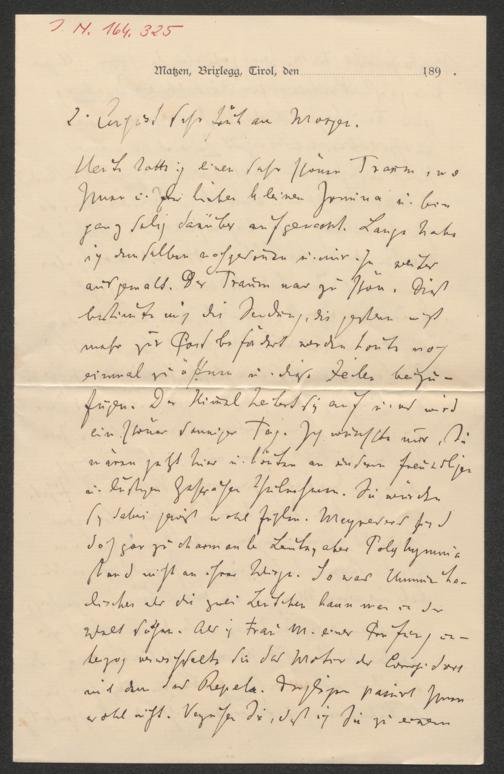 I. N. 164.325
Matzen, Brixlegg, Tirol, den 189 .
2. August sehr früh am Morgen.
Heute hatte ich einen sehr schönen Traum, von
Ihnen u. Ihrer lieben kleinen u. bin
ganz selig darüber aufgewacht. Lange habe
ich demselben nachgesonnen u. mir ihn weiter
ausgemalt. Der Traum war zu schön. Dies
bestimmte mich die Sendung, die gestern nicht
mehr zur Post befördert werden konnte noch
einmal zu öffnen u. diese Zeilen beizu-
fügen. Der Himmel heitert sich auf u. es wird
ein schöner sonniger Tag. Ich wünschte nur, Sie
wären jetzt hier u. könnten an unseren freundlichen
u. lustigen Gesprächen theilnehmen. Sie würden
sich dabei gewiß wohl fühlen. sind
doch gar zu charmante Leute, aber Polyhymnia
stand nicht an ihrer Wiege. So was Unmusika-
lisches als die zwei Leutchen kann man in der
Welt suchen. Als ich Frau M. einer Prüfung un-
terzog verwechselte sie das Motiv des Corregidors
mit dem des Repela. Dergleichen passirt Ihnen
wohl nicht. Verzeihen Sie, daß ich Sie zu einem